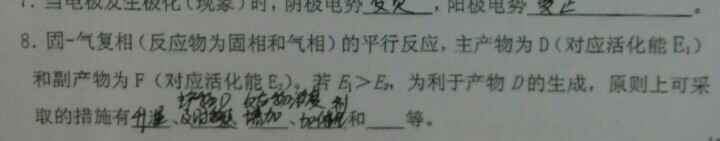 7. 当电极发生极化（现象）时，阴极电势 变负 ，阳极电势 变正 。
8. 固-气复相（反应物为固相和气相）的平行反应，主产物为 D（对应活化能 E₁）
和副产物为 F（对应活化能 E₂）。若 E₁＞E₂，为利于产物 D 的生成，原则上可采
产物D 反应物浓度 剂
取的措施有 升温 、 及时 、 增加 、 加催化 和 等。